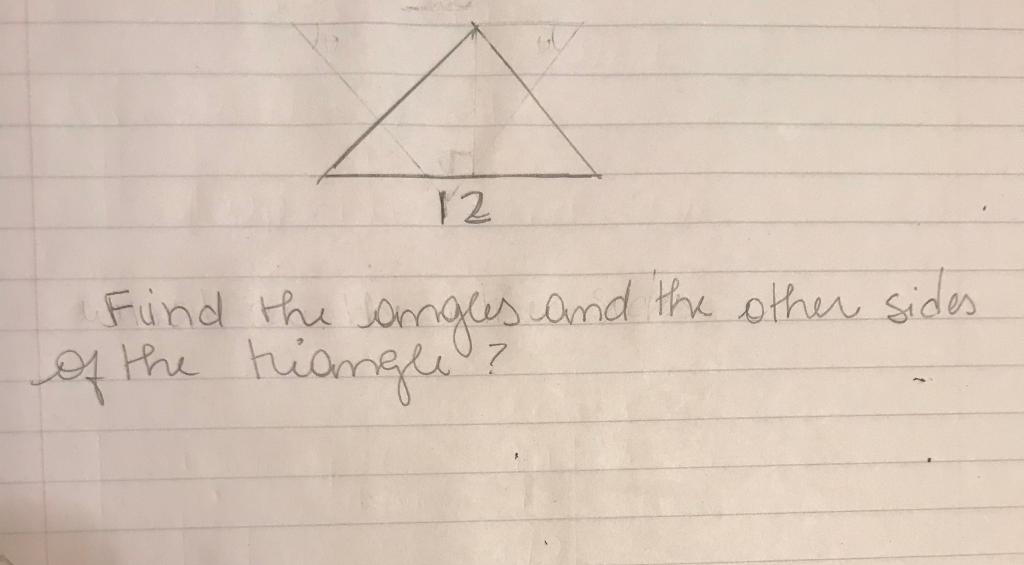 12
Find the angles and the other sides
of the triangle ?